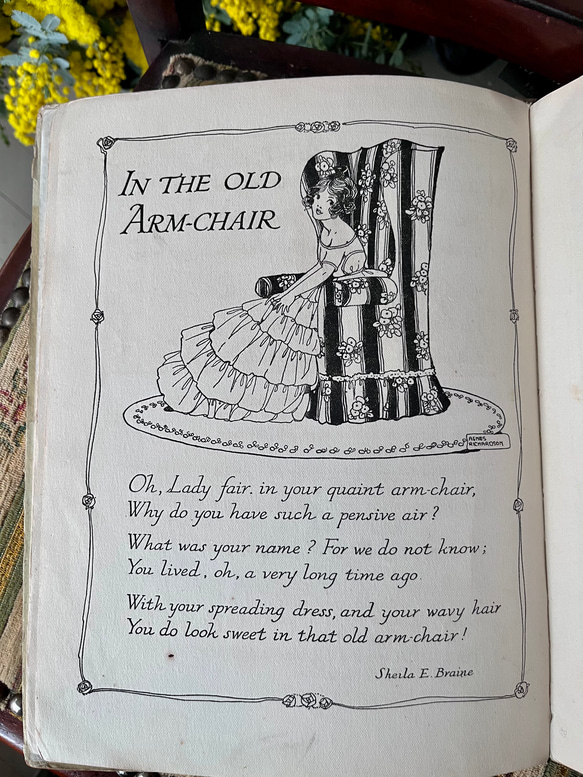 IN THE OLD
ARM-CHAIR
AGNES
RICHARDSON
Oh, Lady fair. in your quaint arm-chair,
Why do you have such a pensive air?
What was your name? For we do not know;
You lived, oh, a very long time ago.
With your spreading dress, and your wavy hair
You do look sweet in that old arm-chair!
Sheila E. Braine